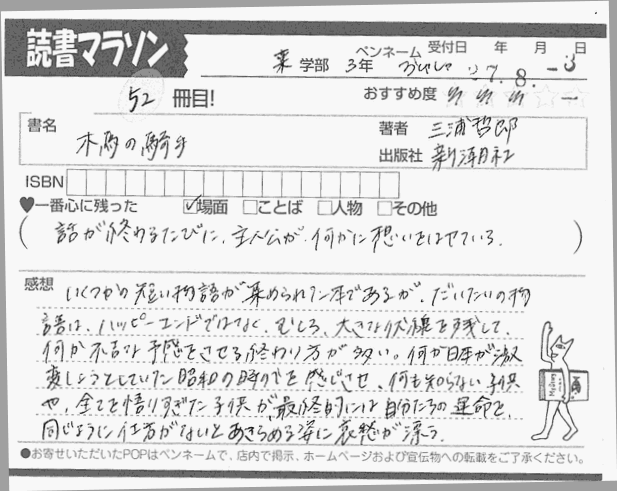 読書マラソン
薬学部 3年 ペンネーム 受付日 年 月 日
27.8.-3
52冊目!
おすすめ度
書名 木馬の騎手
著者 三浦哲郎
出版社 新潮社
ISBN
♥一番心に残った ☑場面 □ことば □人物 □その他
(話が終わるたびに、主人公が、何かに想いをはせている。)
感想 いくつかの短い物語が集められた本であるが、だいたいの物
語は、ハッピーエンドではなく、むしろ、大きな伏線を残して、
何か不吉な予感をさせる終わり方が多い。何か日本が激
変しようとしていた昭和の時の を感じさせ、何も知らない子供
や、全てを悟りすぎた子供が、最終的には自分たちの運命と、
同じように仕方がないとあきらめる姿に哀愁が漂う。
●お寄せいただいたPOPはペンネームで、店内で掲示、ホームページおよび宣伝物への転載をご了承ください。